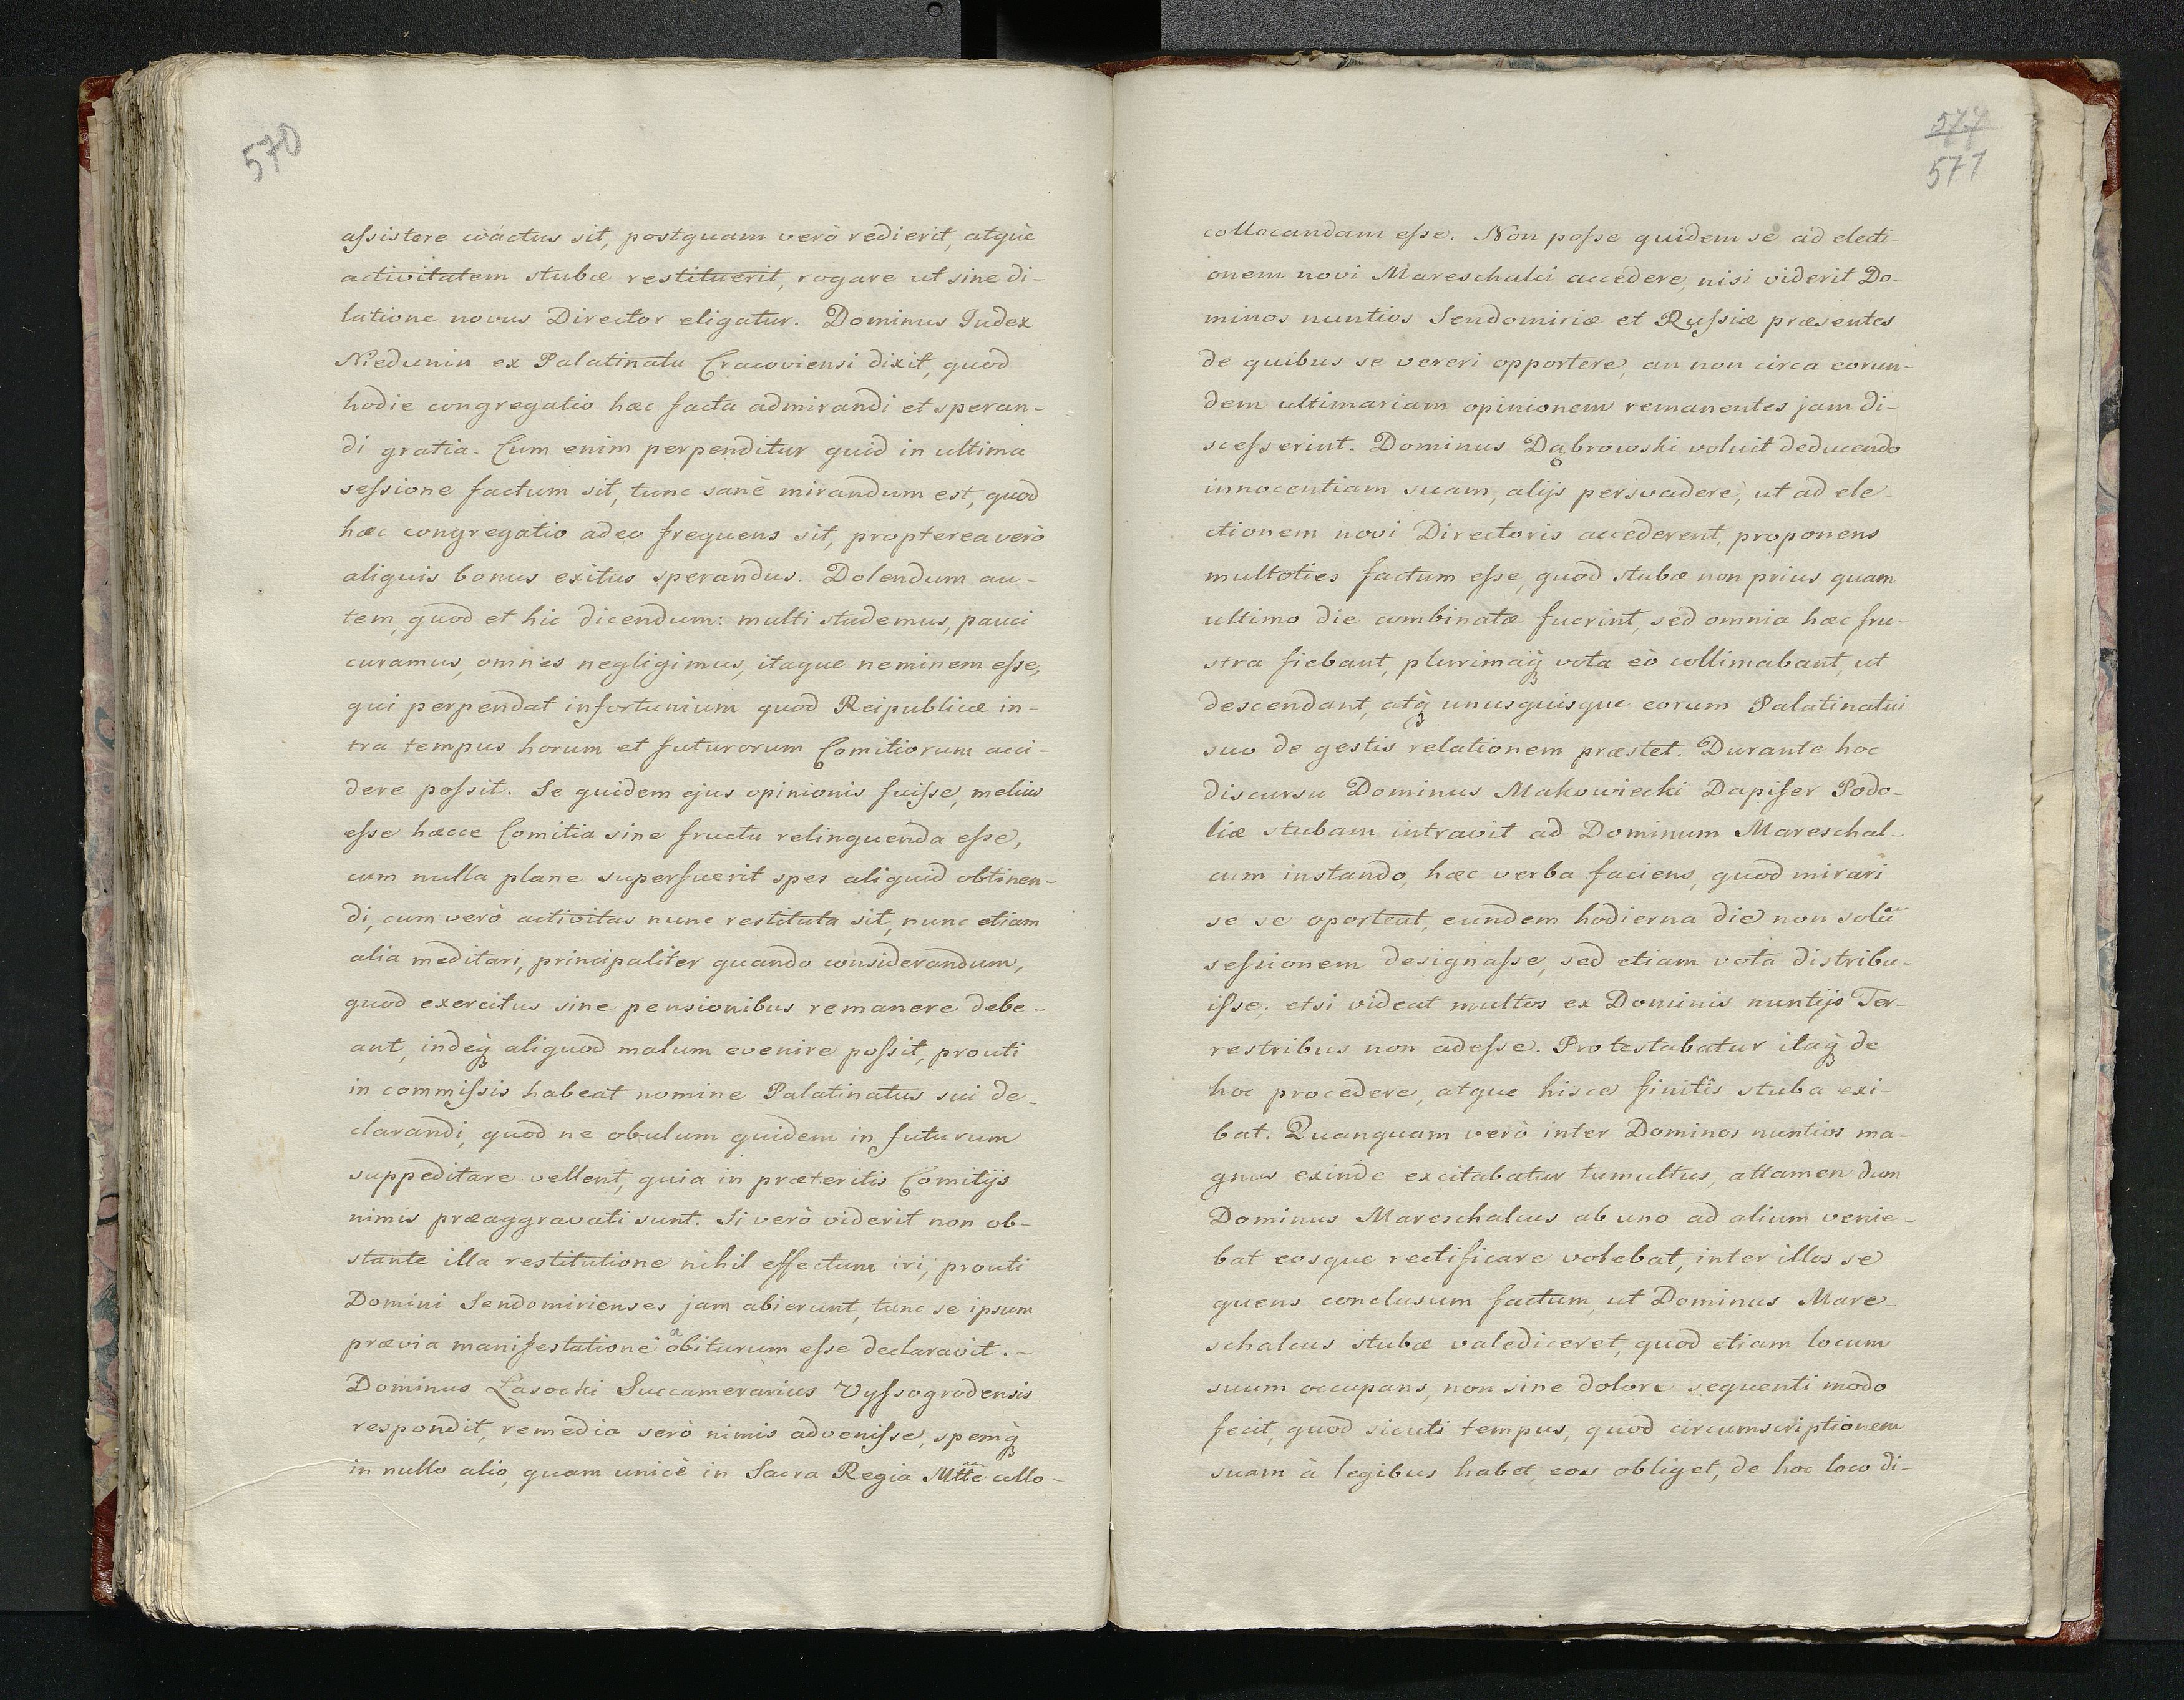 570
aſsistere coáctus sit, postquam verò redierit, atquè
activitatem stubæ restituerit, rogare ut sine di-
latione novus Director eligatur. Dominus Judex
Niedunin ex Palatinatu Cracoviensi dixit, quod
hodie congregatio hæc facta admirandi et speran-
di gratia. Cum enim perpenditur quid in ultima
seſsione factum sit, tunc sanè mirandum est, quod
hæc congregatio adeo frequens sit, propterea verò
aliquis bonus exitus sperandus. Dolendum au-
tem, quod et hic dicendum: multi studemus, pauci
curamus, omnes negligimus, itaque neminem eſse,
qui perpendat infortunium quod Reipublicæ in-
tra tempus horum et futurorum Comitiorum acci-
dere poſsit. Se quidem ejus opinionis fuiſse, melius
eſse hæcce Comitia sine fructu relinquenda eſse,
cum nulla plane superfuerit spes aliquid obtinen-
di, cum verò activitas nunc restituta sit, nunc etiam
alia meditari, principaliter quando considerandum,
quod exercitus sine pensionibus remanere debe-
ant, indeq̀ aliquod malum evenire poſsit, prouti
in commiſsis habeat nomine Palatinatus sui de-
clarandi, quod ne obulum quidem in futurum
suppeditare vellent, quia in præteritis Comitijs
nimis præaggravati sunt. Si verò viderit non ob-
stante illa restitutione nihil effectum iri, prouti
Domini Sendomirienses jam abierunt, tunc se ipsum
prævia manifestatione abiturum eſse declaravit. –
Dominus Lasocki Succamerarius Vyſsogrodensis
respondit, remedia serò nimis adveniſse, spemq̀
in nullo alio, quam unicè in Sacra Regia Mtte collo-
577
571
collocandam eſse. Non poſse quidem se ad electi-
onem novi Mareschalci accedere, nisi viderit Do-
minos nuntios Sendomiriæ et Ruſsiæ præsentes
de quibus se vereri opportere, an non circa eorun-
dem ultimariam opinionem remanentes jam di-
sceſserint. Dominus Dąbrowski voluit deducendo
innocentiam suam, alijs persvadere, ut ad ele-
ctionem novi Directoris accederent, proponens
multoties factum eſse, quod stubæ non prius quam
ultimo die combinatæ fuerint, sed omnia hæc fru-
stra fiebant, plurimaq̀ vota eò collimabant, ut
descendant, atq̀ unusquisque eorum Palatinatui
suo de gestis relationem præstet. Durante hoc
discursu Dominus Makowiecki Dapifer Podo-
liæ stubam intravit ad Dominum Mareschal-
cum instando, hæc verba faciens, quod mirari
se se oporteat, eundem hodierna die non solũ
seſsionem designaſse, sed etiam vota distribu-
iſse; etsi videat multos ex Dominis nuntijs Ter-
restribus non adeſse. Protestabatur itaq̀ de
hoc procedere, atque hisce finitis stuba exi-
bat. Quanquam verò inter Dominos nuntios ma-
gnus exinde excitabatur tumultus, attamen dum
Dominus Mareschalcus ab uno ad alium venie-
bat eosque rectificare volebat, inter illos se
quens conclusum factum, ut Dominus Mare-
schalcus stubæ valediceret, quod etiam locum
suum occupans, non sine dolore sequenti modo
fecit, quod sicuti tempus, quod circumscriptionem
suam à legibus habet, eos obliget, de hoc loco di-